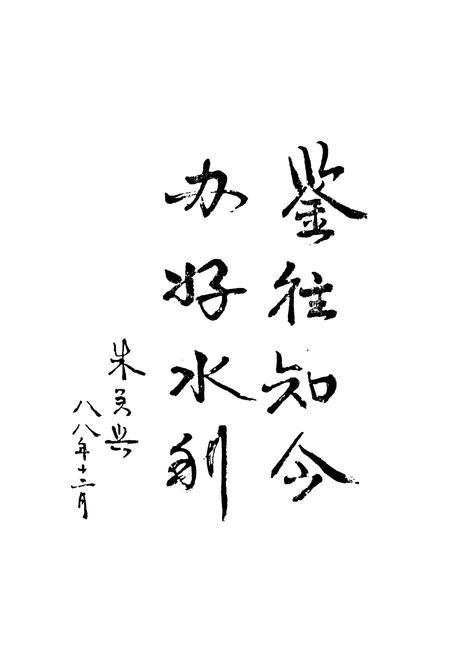 鉴往知今
办好水利
朱云兴
八八年十二月